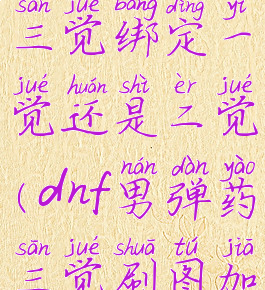 sān jué bǎng dìng yī
三觉绑定一
jué huán shì èr jué
觉还是二觉
nán dàn yào
(dnf男弹药
sān jué shuā tú jiā
三觉刷图加